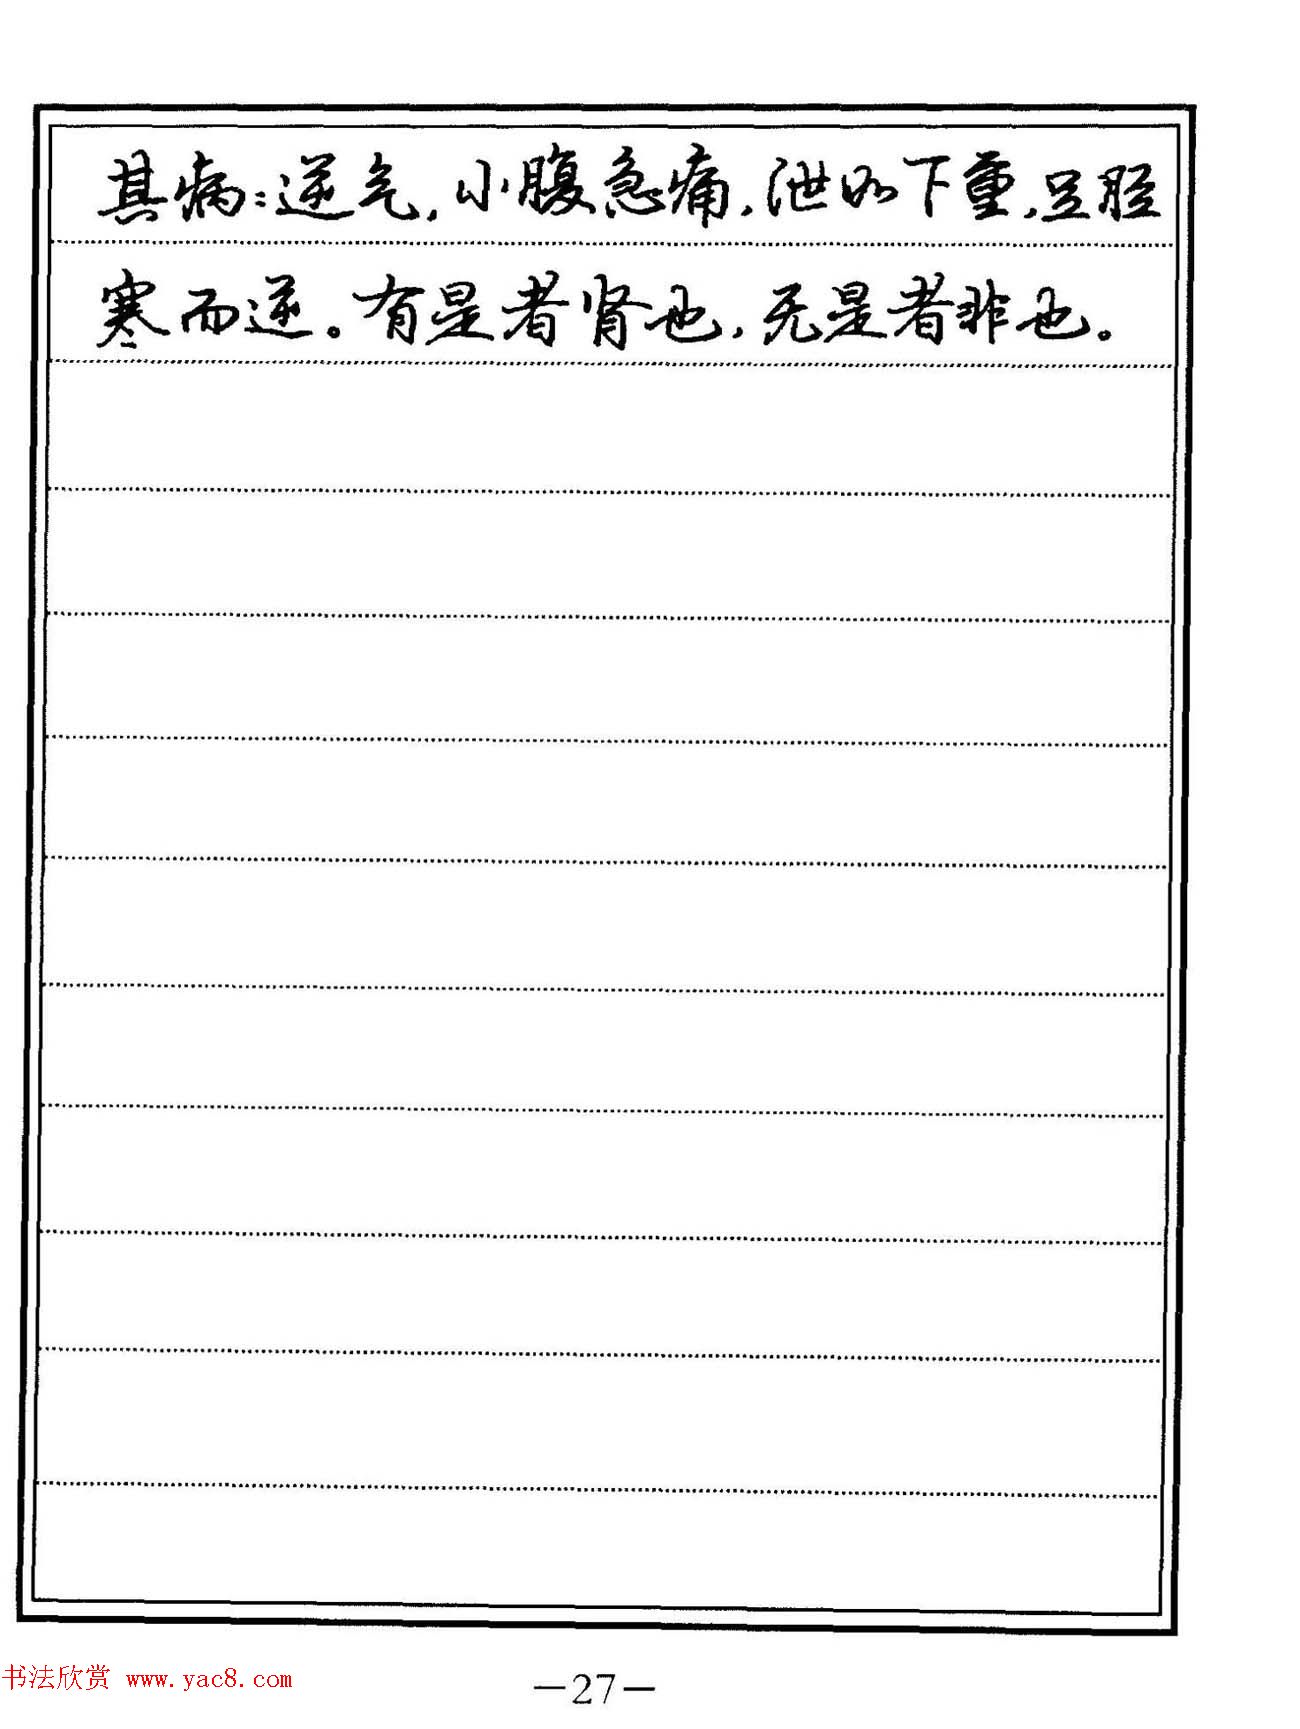 其病:逆气,小腹急痛,泄如下重,足胫
寒而逆。有是者肾也,无是者非也。
书法欣赏 www.yac8.com
—27—